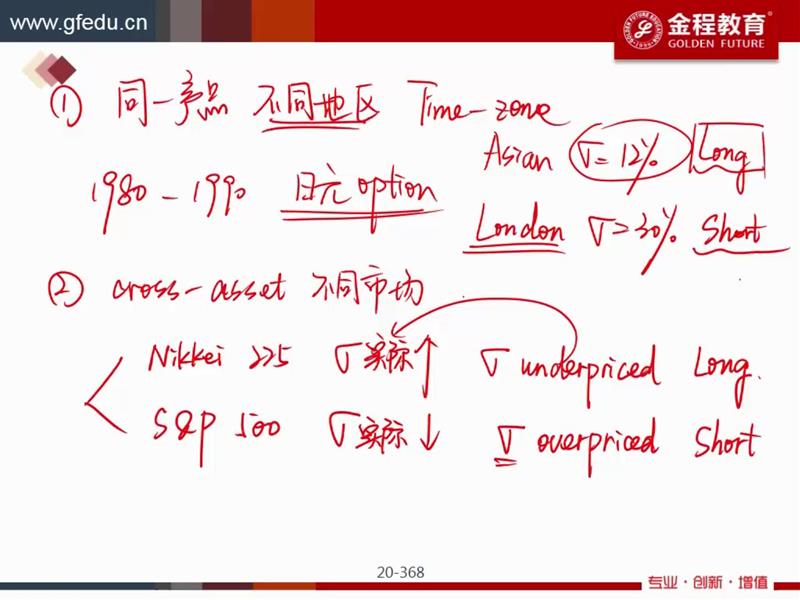 www.gfedu.cn
金程教育
GOLDEN FUTURE
① 同一产品 不同地区 Time-zone
Asian σ=12% Long
1980-1990 日元option
London σ=30% Short
② cross-asset 不同市场
Nikkei 225 σ实际↑ σ underpriced Long.
S&P 500 σ实际↓ σ overpriced Short
20-368
专业·创新·增值